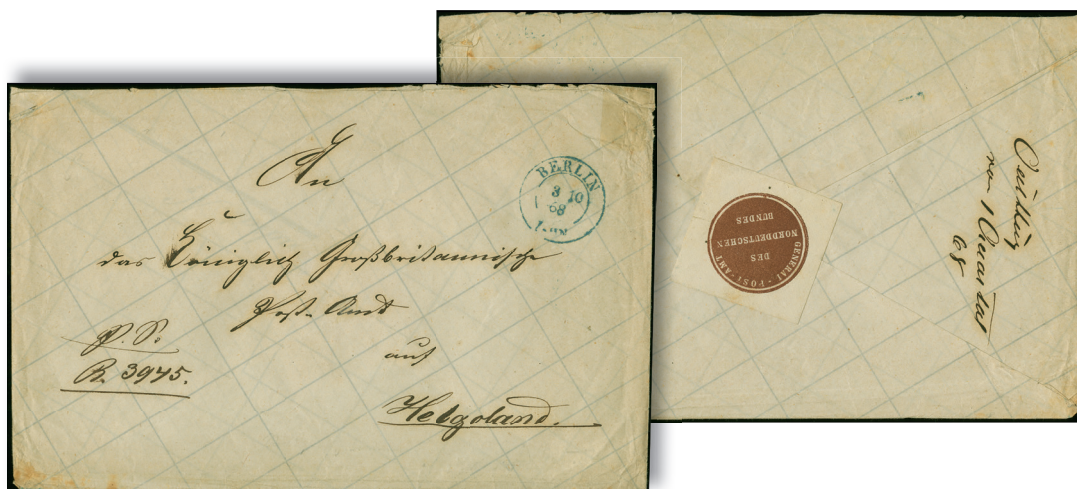 An
das Königlich Großbritannische
Post-Amt
auf
Helgoland.
P. S.
R. 3945.
BERLIN
3 10
68
GENERAL-POST-AMT
DES
NORDDEUTSCHEN
BUNDES
1 Quartal
68